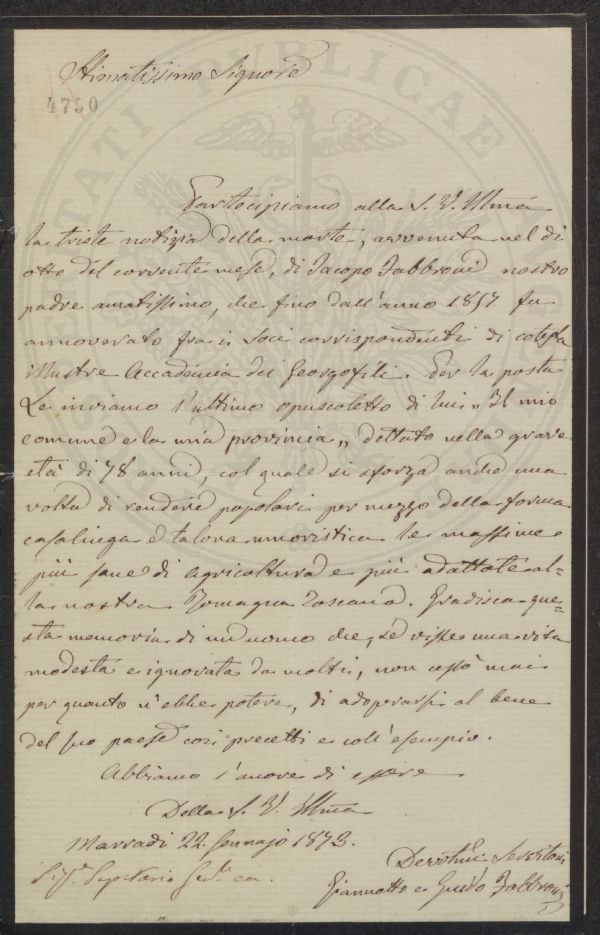 Stimatissimo Signore
4750
Partecipiamo alla S. V. Illma
la triste notizia della morte, avvenuta nel dì
otto del corrente mese, di Jacopo Fabbroni nostro
padre amatissimo, che fino dall'anno 1857 fu
annoverato fra i Soci corrispondenti di cotesta
illustre Accademia dei Georgofili. Per la posta
Le inviamo l'ultimo opuscoletto di lui „ Il mio
comune e la mia provincia „ dettato nella grave
età di 78 anni, col quale si sforza anche una
volta di rendere popolari per mezzo della forma
casalinga e talora umoristica le massime
più sane di agricoltura e più adattate al=
la nostra Romagna Toscana. Gradisca que=
sta memoria di un uomo che, se visse una vita
modesta e ignorata da molti, non cessò mai
per quanto n'ebbe potere, di adoperarsi al bene
del suo paese coi precetti e coll'esempio.
Abbiamo l'onore di essere
Della S. V. Illma
Marradi 22 Gennajo 1873.
Devotmi Servitori
Sigr Segretario
Giannotto e Guido Fabbroni